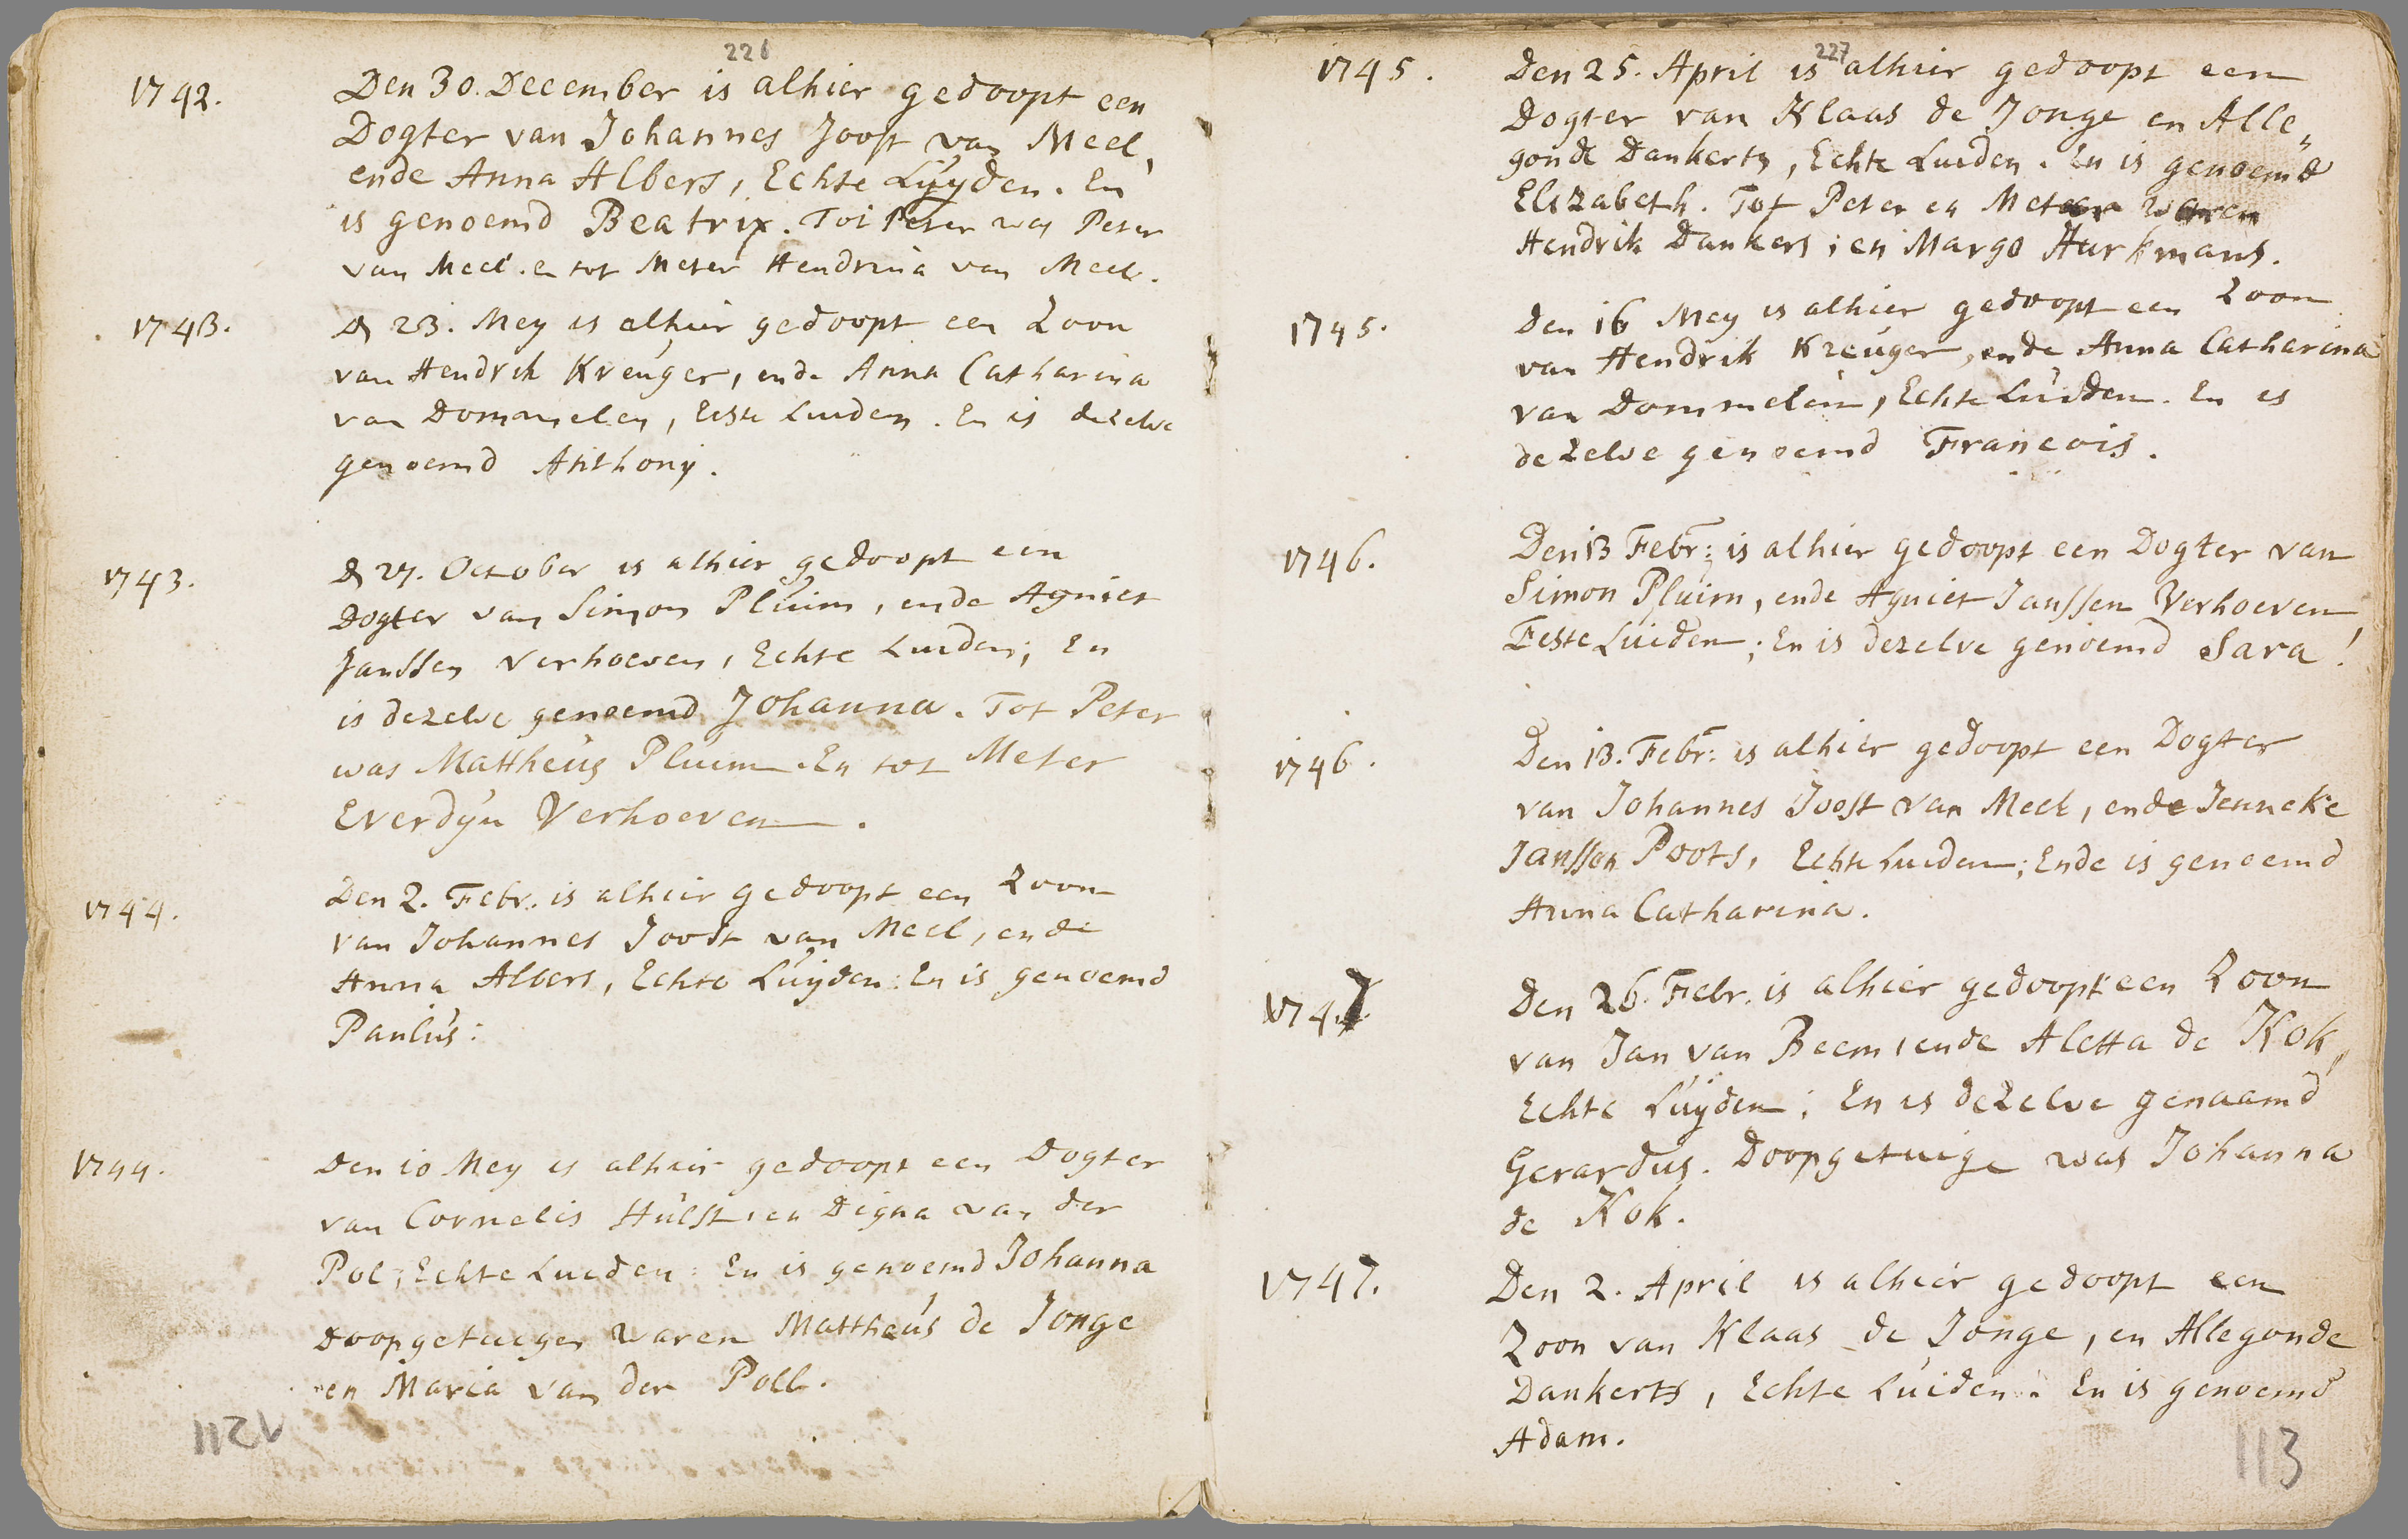 226
1742. Den 30. December is alhier gedoopt een
Dogter van Johannes Joost van Meel,
ende Anna Albers, Echte Luyden. En
is genoemd Beatrix. Tot Peter was Peter
van Meel. en tot Meter Hendrina van Meel.
1743. D 23. Mey is alhier gedoopt een Zoon
van Hendrik Kreuger, ende Anna Catharina
van Dommelen, Este Luiden. En is dezelve
genoemd Anthony.
1743. D 27. October is alhier gedoopt een
Dogter van Simon Pluim, ende Agniet
Janssen Verhoeven, Echte Luiden; En
is dezelve genoemd Johanna. Tot Peter
was Mattheus Pluim. En tot Meter
Everdyn Verhoeven.
1744. Den 2. Febr. is alhier gedoopt een Zoon
van Johannes Joost van Meel, ende
Anna Albers, Echte Luyden: En is genoemd
Paulus:
1744. Den 10 Mey is alhier gedoopt een Dogter
van Cornelis Hulst, en Digna van der
Pol, Echte Lueden: En is genoemd Johanna
Doopgetuigen waren Mattheus de Jonge
en Maria van der Poll.
112v
227
1745. Den 25. April is alhier gedoopt een
Dogter van Klaas de Jonge en Alle„
gonde Dankerts, Echte Luiden. En is genoemd
Elizabeth. Tot Peter en Meter waren
Hendrik Dankers, en Margo Hurkmans.
1745. Den 16 Mey is alhier gedoopt een Zoon
van Hendrik Kreuger, ende Anna Catharina
van Dommelen, Echte Luiden. En is
dezelve genoemd Francois.
1746. Den 13 Febr: is alhier gedoopt een Dogter van
Simon Pluim, ende Agniet Janssen Verhoeven
Eeste Luiden; En is dezelve genoemd Sara!
1746. Den 13. Febr: is alhier gedoopt een Dogter
van Johannes Joost van Meel, ende Jenneke
Janssen Poots, Echte Luiden; Ende is genoemd
Anna Catharina.
1747 Den 26. Febr. is alhier gedoopt een Zoon
van Jan van Beem, ende Aletta de Kok„
Echte Luyden; En is dezelve genaamd
Gerardus. Doopgetuige was Johanna
de Kok.
1747. Den 2. April is alhier gedoopt een
Zoon van Klaas de Jonge, en Allegonde
Dankerts, Echte Luiden: En is genoemd
Adam.
113